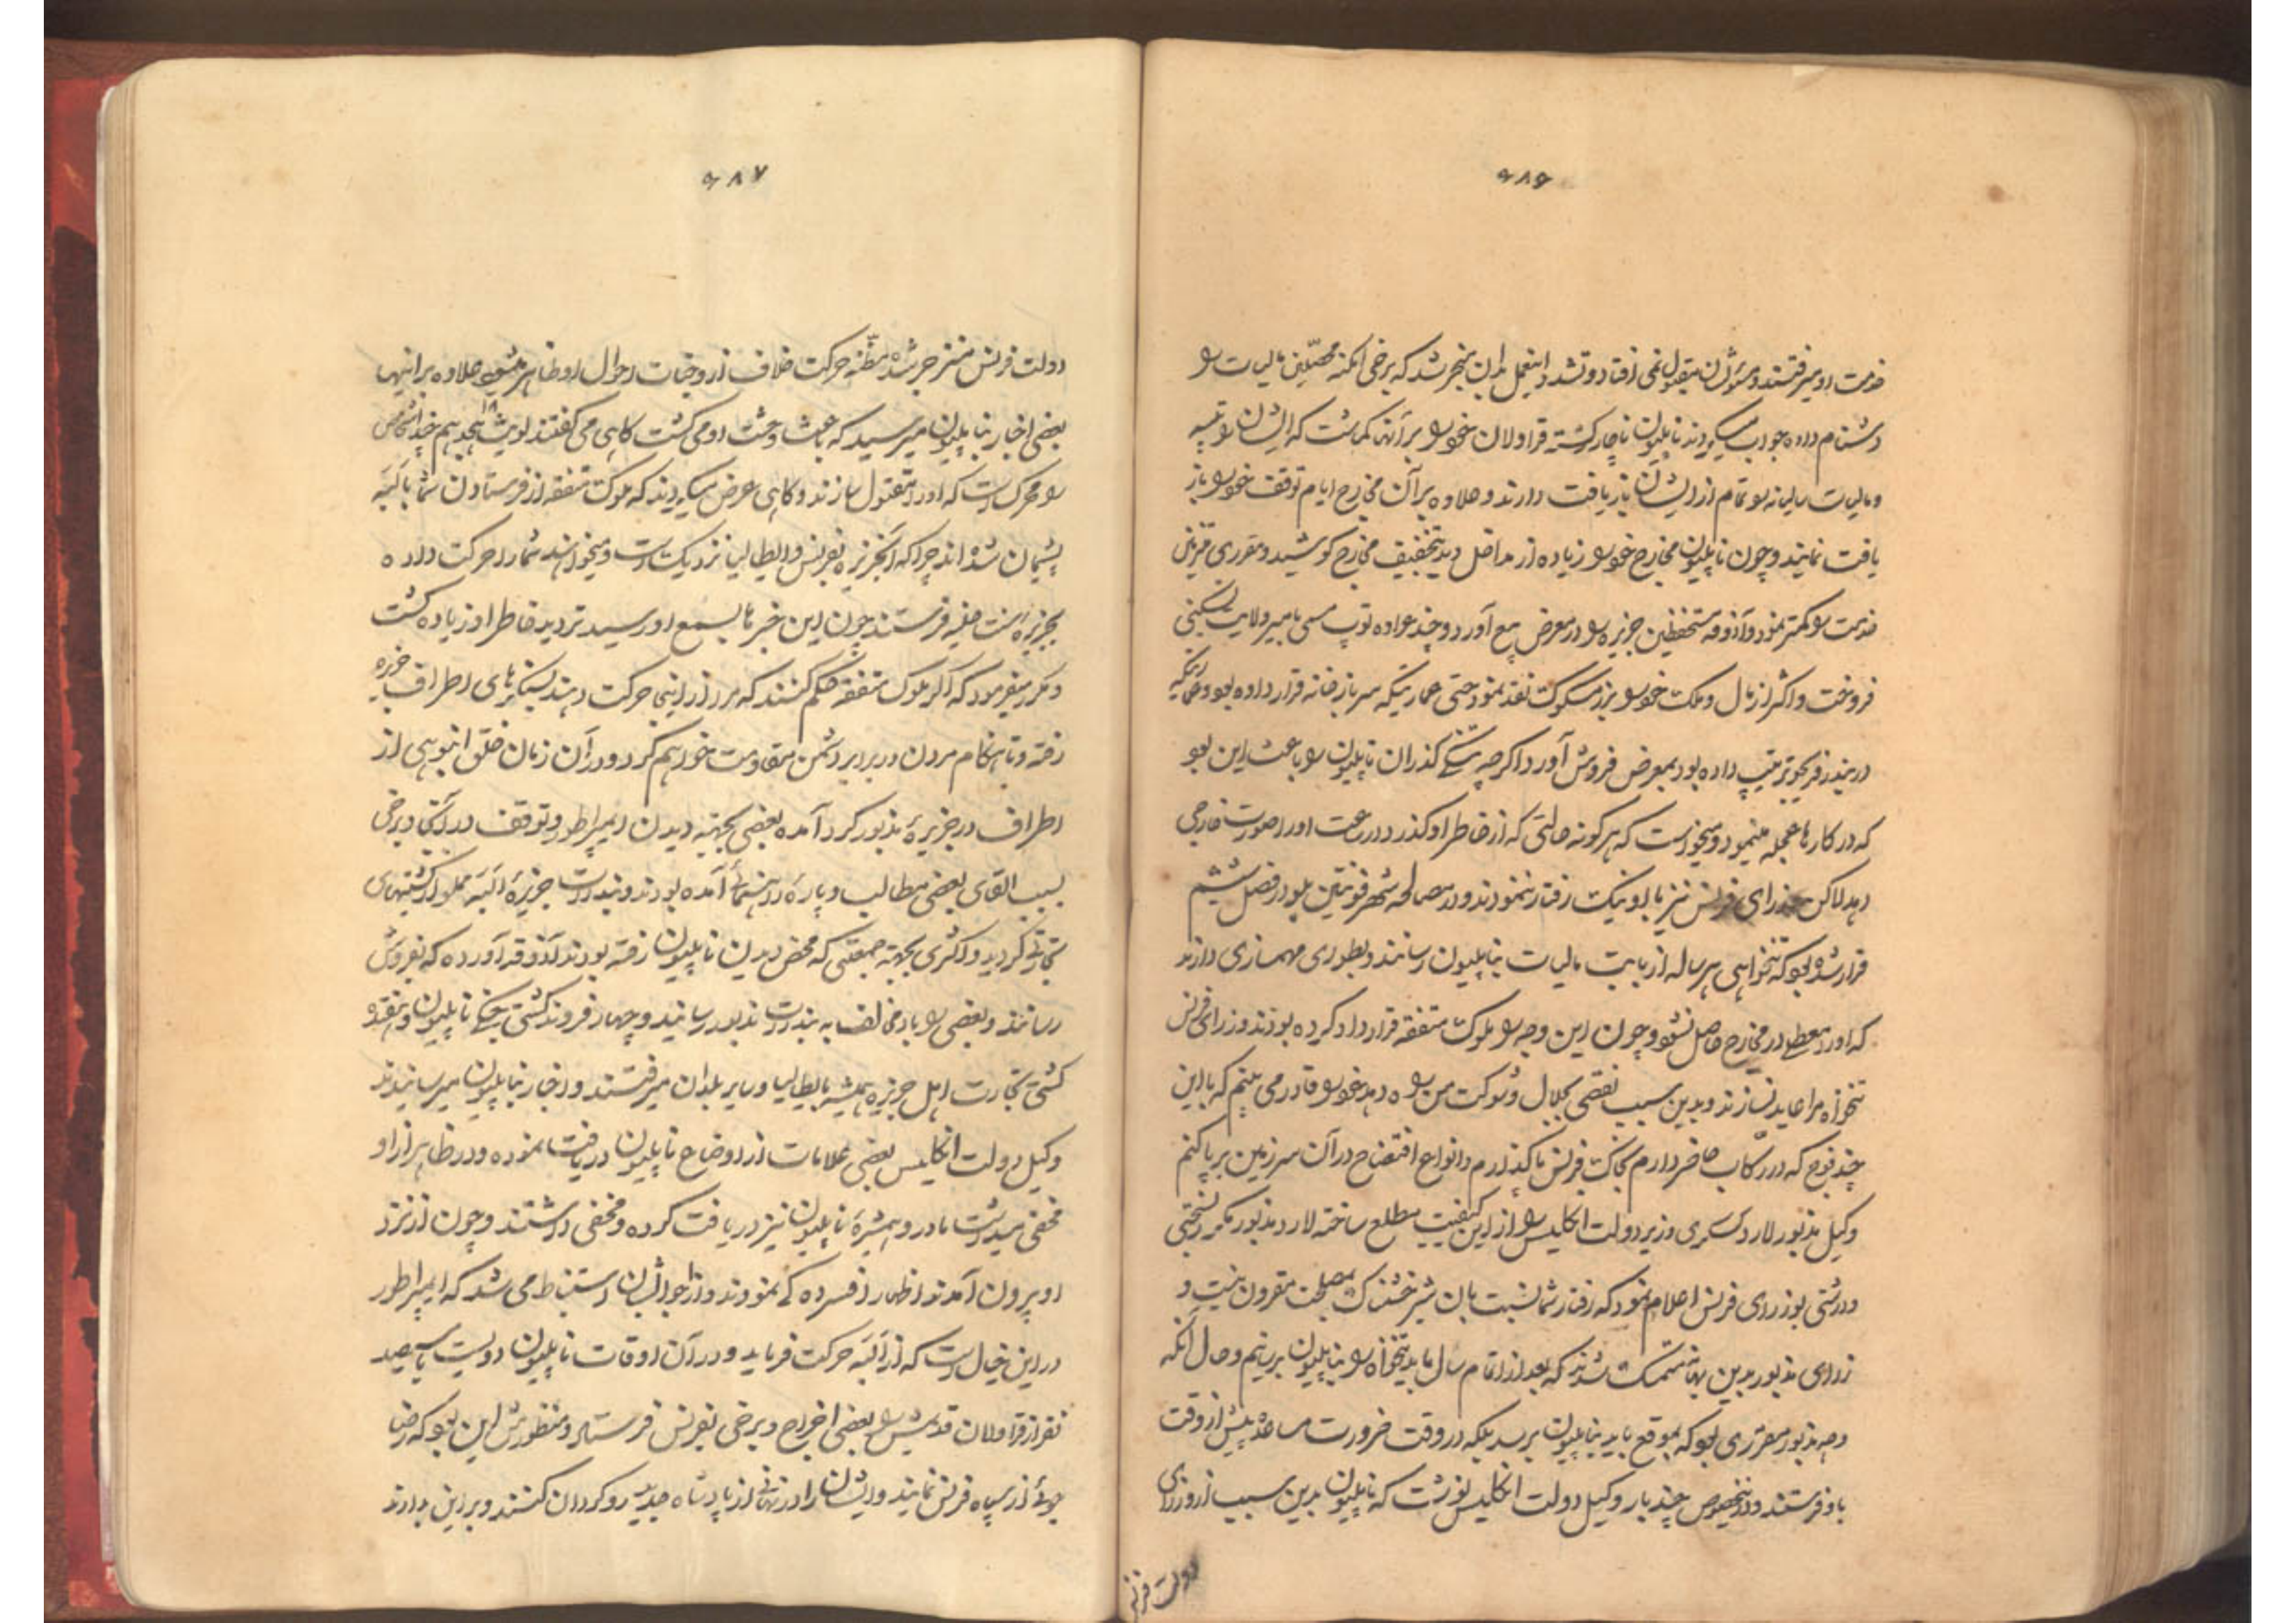 ۶۸۶
خدمت او میرفتند و مسئولشان مقبول نمی افتاد و تشدد اینعمل بدان منجر شد که برخی امکنه محصلین مالیات را
دشنام داده جواب میکردند ناپلیون ناچار گشته قراولان خود را بر آنها گماشت که ایشان را تنبیه
و مالیات سالیانه را تمام از ایشان بازیافت دارند و علاوه بر آن مخارج ایام توقف خود را باز
یافت نمایند و چون ناپلیون مخارج خود را زیاده از مداخل دید بتخفیف مخارج کوشید و مقرری
خدمت را کمتر نمود و آذوقه مستحفظین جزیره را در معرض بیع آورد و چند عراده توپ مسمی بامیر ولایت
فروخت و اکثر از مال و ملک خود را بزر مسکوک نقد نمود حتی عمارتیکه سربازخانه قرار داده بود و عمارتیکه
در بندر فریجو ترتیب داده بود بمعرض فروش آورد اگر چه تنگی گذران ناپلیون را باعث این بود
که در کارها عجله مینمود و میخواست که هر گونه حالتی که از خاطر او گذرد در ساعت او را صورت خارجی
دهد لاکن وزرای فرنس نیز با او نیک رفتار ننمودند و در مصالحه شهر فونتین بلو در فصل ششم
قرار شده بود که تنخواهی هر ساله از بابت مالیات بناپلیون رسانند و بطوری مهمسازی دارند
که او را معطلی در مخارج حاصل نشود و چون این وجه را ملوک متفقه قرارداد کرده بودند وزرای فرنس
تنخواه مرا عاید نسازند و بدین سبب نقصی بجلال و شوکت من راه دهد خود را قادر می بینم که با این
چند فوج که در رکاب حاضر دارم بخاک فرنس پا گذارم و انواع افتضاح در آن سرزمین برپا کنم
وکیل مذبور لارد کسلری وزیر دولت انگلیس را از این کیفیت مطلع ساخته لارد مذبور مکرر بسختی
و درشتی بوزرای فرنس اعلام نمود که رفتار شما نسبت بان شیر خشمناک بمصلحت مقرون نیست و
وزرای مذبور بدین بهانه متمسک شدند که بعد از اتمام سال باید تنخواه را بناپلیون برسانیم و حال آنکه
وجه مذبور مقرری بود که بموقع باید بناپلیون برسد بلکه در وقت ضرورت مساعده پیش از وقت
باو فرستند و در اینخصوص چند بار وکیل دولت انگلیس نوشت که ناپلیون بدین سبب از وزرای
دولت فرنس
۶۸۷
دولت فرنس منزجر شده مظنه حرکت خلاف از وجنات احوال او ظاهر میشود علاوه بر اینها
بعضی اخبار بناپلیون میرسید که باعث وحشت او می گشت گاهی می گفتند لویی هجدهم چند اشخاص
را محرک است که او را مقتول سازند و گاهی عرض میکردند که ملوک متفقه از فرستادن شما بالبه
پشیمان شده اند چرا که آنجزیره بفرنس و ایطالیا نزدیک است و میخواهند شما را حرکت داده
بجزیره سنت هلینه فرستند چون این خبرها بسمع او رسید تردید خاطر او زیاده گشت
و مکرر میفرمود که اگر ملوک متفقه حکم کنند که مرا از اینجا حرکت دهند بسنگرهای اطراف جزیره
رفته و تا هنگام مردن در برابر دشمن مقاومت خواهم کرد و در آن زمان خلق انبوهی از
اطراف در جزیرهٔ مذبور گرد آمده بعضی بجهته دیدن ایمپراطور و توقف در آنجا و برخی
بسبب القای بعضی مطالب و پاره رهنمائی آمده بودند و بندرات جزیرهٔ البه مملو از کشتیهای
تجارتی گردید و اکثری بجهته جمعتی که محض دیدن ناپلیون رفته بودند آذوقه آورده که بفروش
رسانند و بعضی را باد مخالف به بندرات مذبور رسانید و چهار فروند کشتی جنگی ناپلیون و هفده
کشتی تجارت اهل جزیره همیشه بایطالیا و سایر بلدان میرفتند و اخبار بناپلیون میرسانیدند
وکیل دولت انگلیس بعضی علامات از اوضاع ناپلیون دریافت نموده و در ظاهر از او
مخفی میداشت مادر و همشیرهٔ ناپلیون نیز دریافت کرده و مخفی داشتند و چون از نزد
او بیرون آمدند اظهار افسرده گی نمودند و از احوالشان استنباط می شد که ایمپراطور
در این خیال است که از البه حرکت فرماید و در آن اوقات ناپلیون دویست یا سیصد
نفر از قراولان قدیمش را بعضی اخراج و برخی بفرنس فرستاد و منظورش این بود که رضا
جوئی از سپاه فرنس نمایند و ایشان را در نهانی از پادشاه جدید رو گردان کنند و بر این دارند